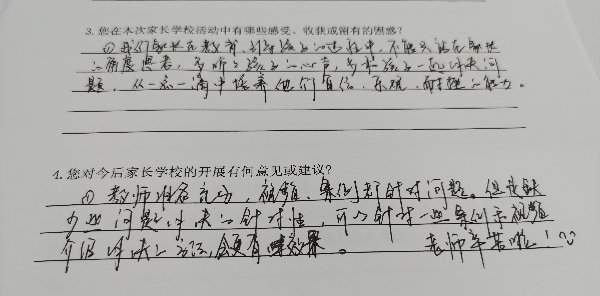 3.您在本次家长学校活动中有哪些感受、收获或留有的困惑?
①我们家长在教育、引导孩子的过程中,不能只站在家长
的角度思考,多听听孩子的心声,多和孩子一起解决问
题,从一点一滴中培养他们自信、乐观、耐挫的能力。
4.您对今后家长学校的开展有何意见或建议?
①教师准备充分,视频、案例都针对问题。但是缺
少些问题解决的针对性,可以针对一些案例与视频
介绍解决的方法,会更有效果。 老师辛苦啦!